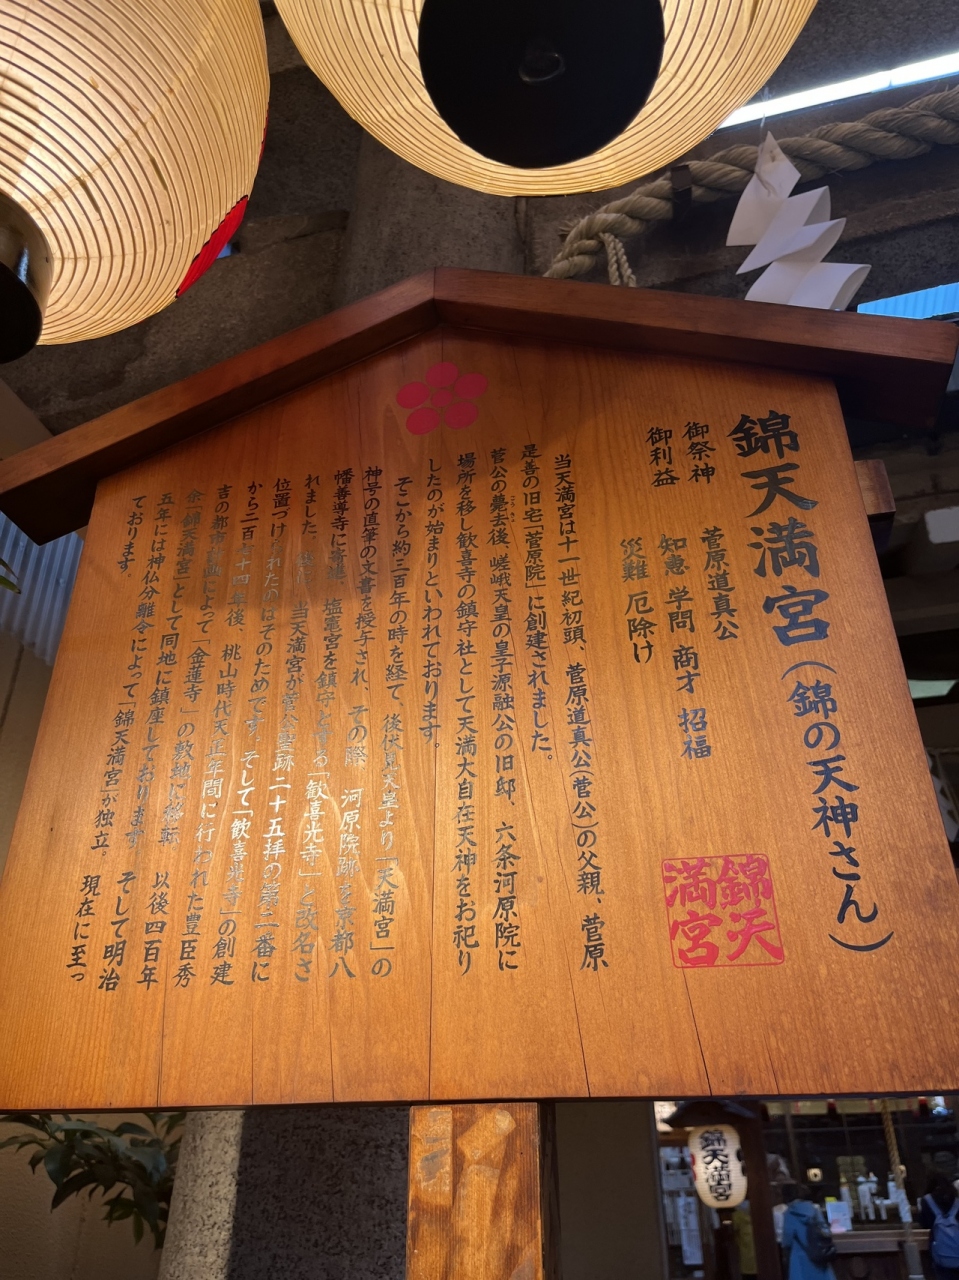 錦天満宮（錦の天神さん）
御祭神　菅原道真公
御利益　知恵 学問 商才 招福
災難 厄除け
錦天
満宮
当天満宮は十一世紀初頭、菅原道真公（菅公）の父親、菅原
是善の旧宅「菅原院」に創建されました。
菅公の薨去後、嵯峨天皇の皇子源融公の旧邸、六条河原院に
場所を移し歓喜寺の鎮守社として天満大自在天神をお祀り
したのが始まりといわれております。
そこから約三百年の時を経て、後伏見天皇より「天満宮」の
神号の直筆の文書を授与され、その際、河原院跡を京都八
幡善導寺に、塩竈宮を鎮守とする「歓喜光寺」と改名さ
れました。当天満宮が菅公聖跡二十五拝の第二番に
位置づけられたのはそのためです。そして「歓喜光寺」の創建
から二百七十四年後、桃山時代天正年間に行われた豊臣秀
吉の都市計画によって「金蓮寺」の敷地に移転、以後四百年
余「錦天満宮」として同地に鎮座しております。そして明治
五年には神仏分離令によって「錦天満宮」が独立。現在に至っ
ております。
錦天満宮